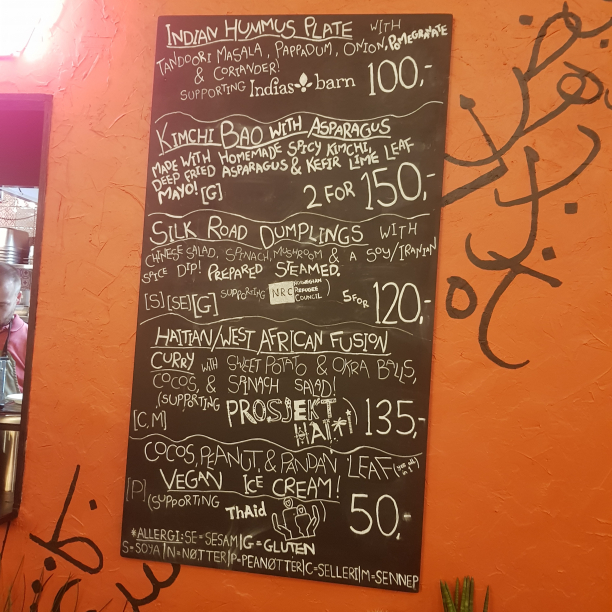 INDIAN HUMMUS PLATE WITH
TANDOORI MASALA, PAPPADUM, ONION, POMEGRANATE
& CORIANDER!
SUPPORTING Indias barn 100,-
KIMCHI BAO WITH ASPARAGUS
MADE WITH HOMEMADE SPICY KIMCHI,
DEEP FRIED ASPARAGUS & KEFIR LIME LEAF
MAYO! [G] 2 FOR 150,-
SILK ROAD DUMPLINGS WITH
CHINESE SALAD, SPINACH, MUSHROOM & A SOY/IRANIAN
SPICE DIP! PREPARED STEAMED.
[S][SE][G] SUPPORTING NRC NORWEGIAN REFUGEE COUNCIL 5 FOR 120,-
HAITIAN/WEST AFRICAN FUSION
CURRY WITH SWEET POTATO & OKRA BALLS,
COCOS, & SPINACH SALAD!
(SUPPORTING PROSJEKT HAITI) 135,-
[C,M]
COCOS, PEANUT, & PANDAN LEAF
VEGAN ICE CREAM!
[P] (SUPPORTING ThAid 50,-
*ALLERGI: SE=SESAM|G=GLUTEN
S=SOYA|N=NØTTER|P=PEANØTTER|C=SELLERI|M=SENNEP